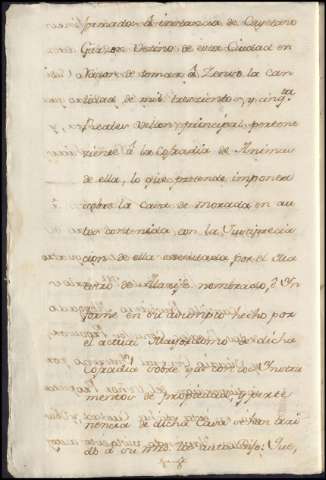 formados á instancia de Cayetano
Garzon Vezino de esta Ciudad en
razon de tomar á Zenso la can
tidad de mil trescientos, y cinq.ta
Reales vellon principal, pertene
ciente á la Cofradia de Animas
de ella, lo que pretende imponer
sobre la Casa de morada en au
tos contenida, con la Justiprecia
cion de ella executada por el Ma
estro de Alarife nombrado, é In
forme en su asumpto hecho por
el actual Mayordomo de dicha
Cofradia sobre que con los Instru
mentos de propiedad y perte
nencia de dicha Casa se han trai
do á su mrd. los autos Dijo: Que,